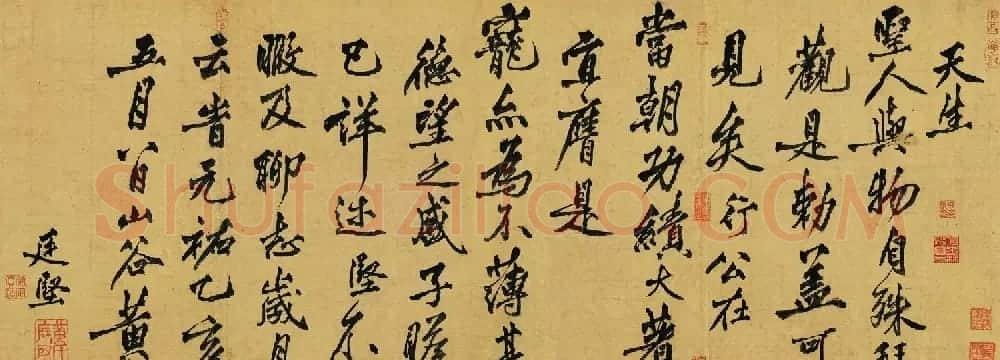 天生
聖人與物自殊
觀是勅蓋可
見矣行公在
當朝功績大著
宜膺是
寵亦為不薄其
德望之盛子瞻
已詳述堅不
暇及聊志歲月
云峕元祐乙亥
五月八日山谷黃
廷堅
ShufaziliaoCOM